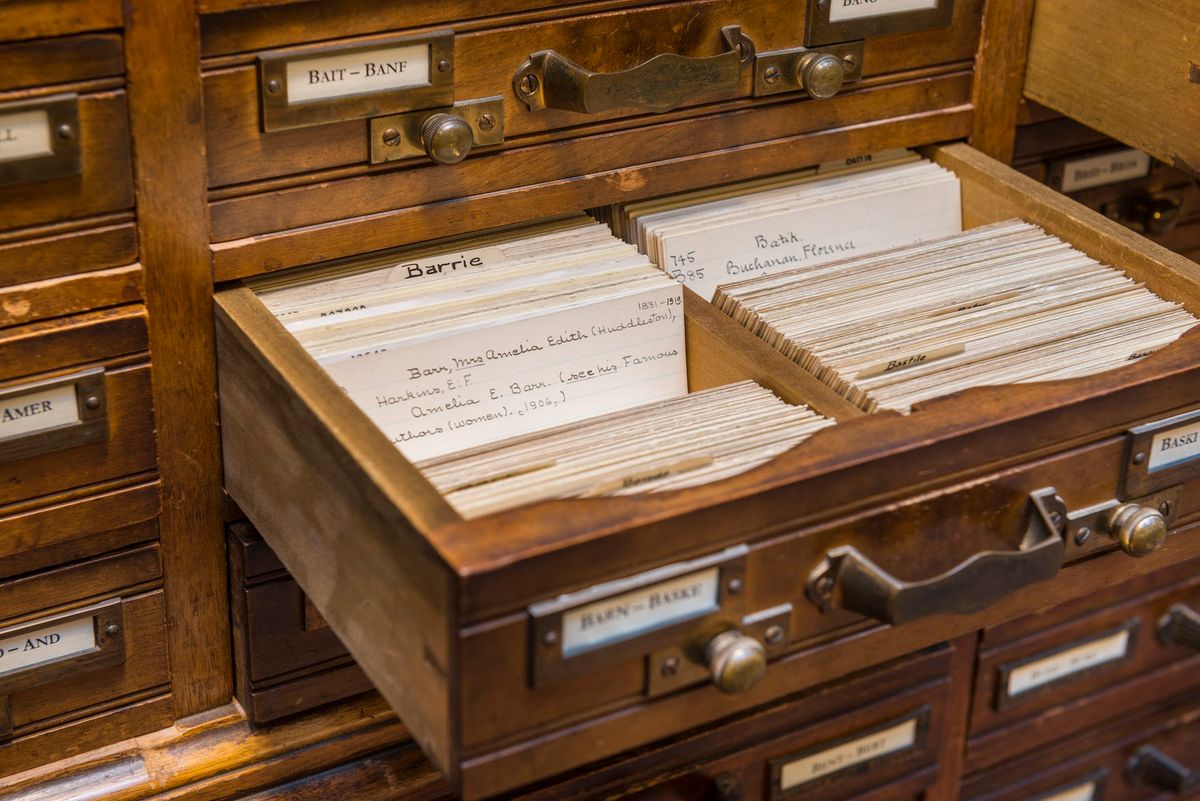 BANG
BAIT – BANF
AMER
– AND
Barrie
Barrie
1831-1919
Barr, Mrs Amelia Edith (Huddleston),
Harkins, E. F.
Amelia E. Barr. (see his Famous
uthors (women). 1906,)
745
B85
Batik.
Buchanan, Florence
Bastile
BARN – BASKE
BASKI
BENT – BERT